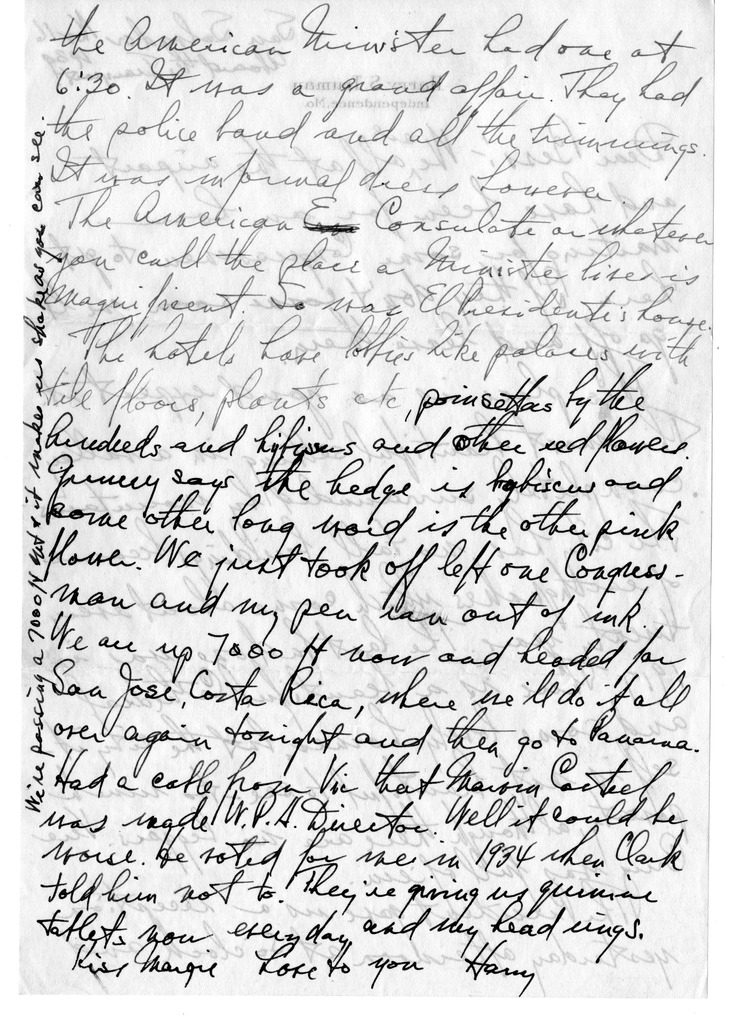 the American Minister had one at
6:30. It was a grand affair. They had
the police band and all the trimmings.
It was informal dress however.
The American Consulate or whatever
you call the place a Minister lives is
magnificent. So was El Presidente's house.
The hotels have lobbies like palaces with
tile floors, plants etc, poinsettas by the
hundreds and hybisus and other red flowers.
says the hedge is hybiscus and
some other long word is the other pink
flower. We just took off left one Congress-
man and my pen ran out of ink.
We are up 7000 ft now and headed for
San Jose, Costa Rica, where we'll do it all
over again tonight and then go to Panama.
Had a cable from Vic that Marvin
was made W.P.A. Director. Well it could be
worse. He voted for me in 1934 when Clark
told him not to. They're giving us quinine
tablets now every day and my head rings.
Kiss Margie Love to you Harry
We're passing a 7000 ft mt & it makes us shake as you can see.
Harry S. Truman
Independence, Mo.